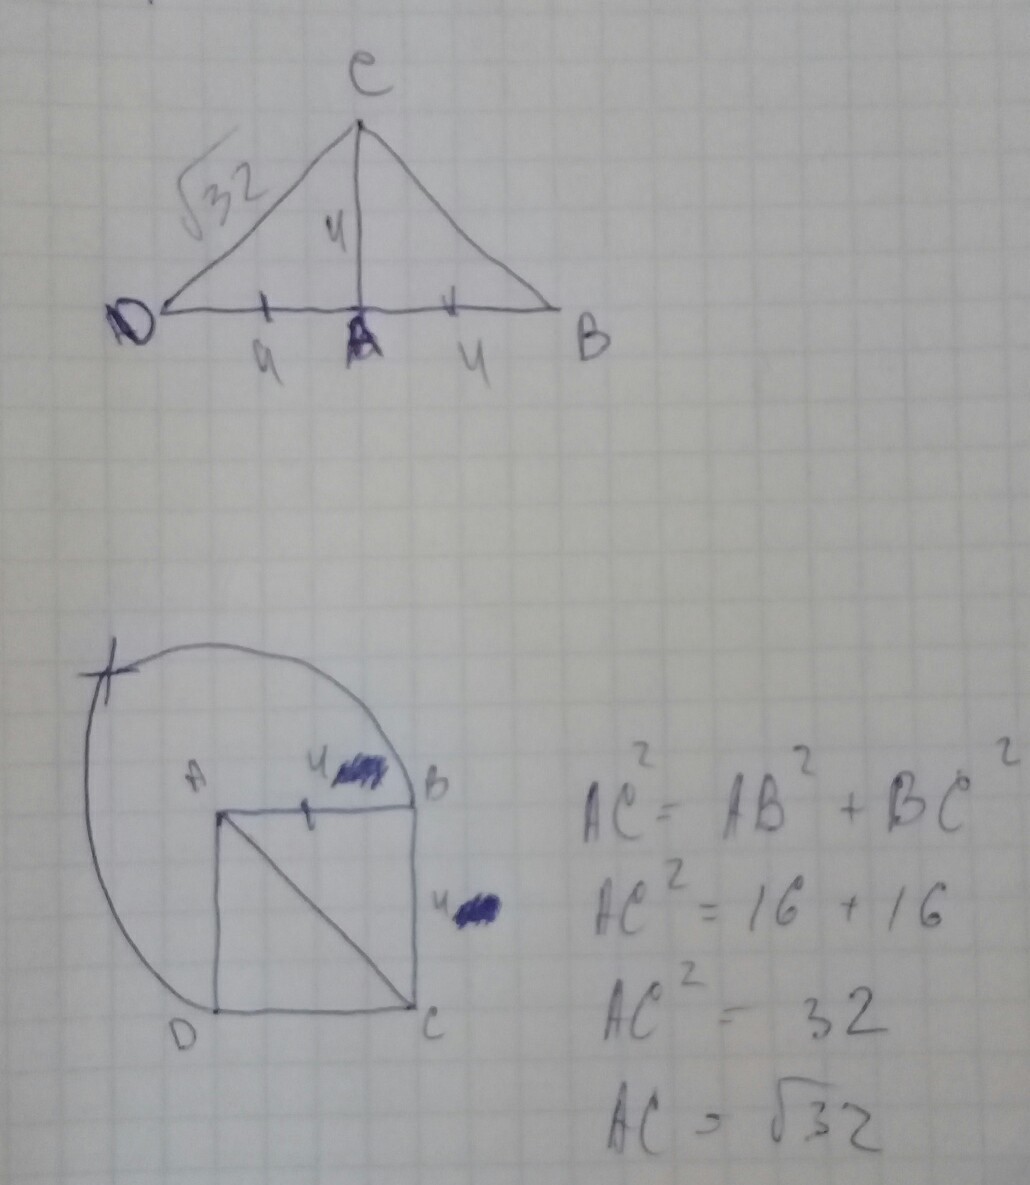 C
√32
4
D A B
4 4
A 4 B
4
D C
AC² = AB² + BC²
AC² = 16 + 16
AC² = 32
AC = √32